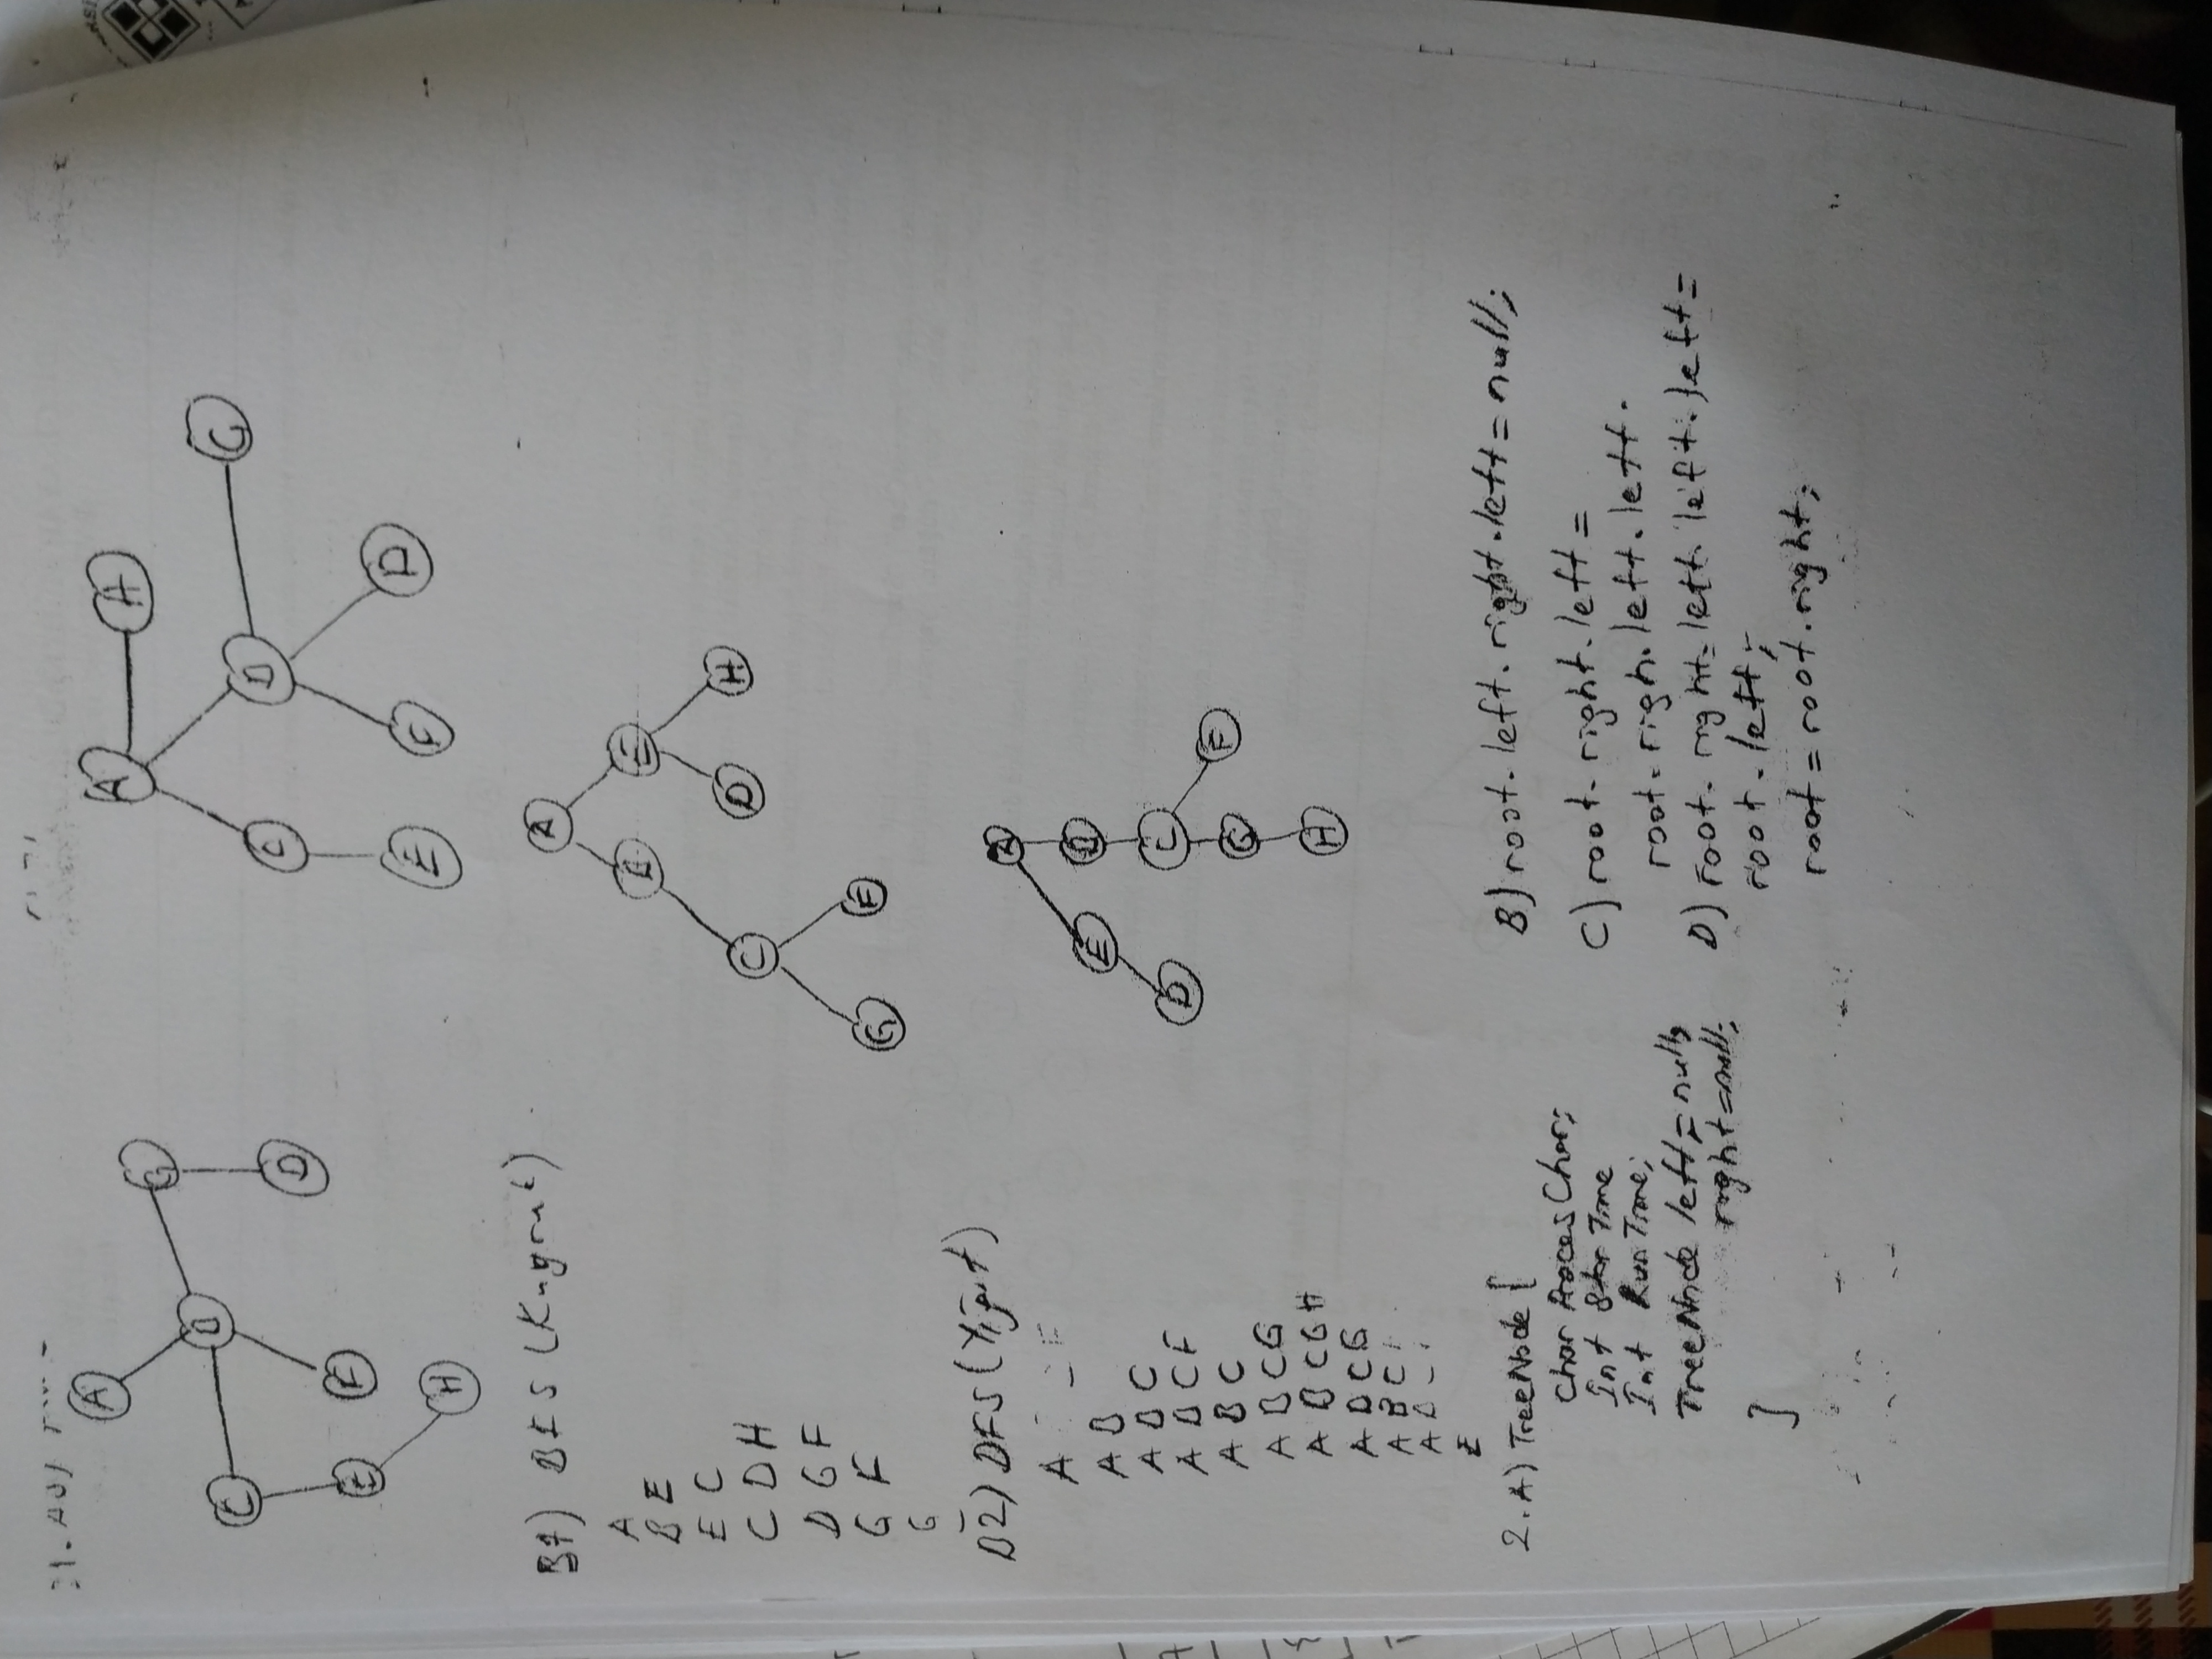 A
G
B
C
D
E
F
H
A
A
G
C
D
E
F
D
B1) BFS (Kuyruk)
A
B E
E C
C D H
D G F
G F
G
A
B
E
C
D
H
G
F
B2) DFS (Yığıt)
A
A B
A B C
A B C F
A B C
A B C G
A B C G H
A B C G
A B C
A B
E
A
E
B
D
C
G
F
H
2. A) TreeNode {
char
Int Time
Int RunTime;
TreeNode left = null;
right = null;
}
B) root. left. right. left = null;
C) root. right. left =
root. righ. left. left.
D) root. right. left. left. left =
root. left;
root = root. right;